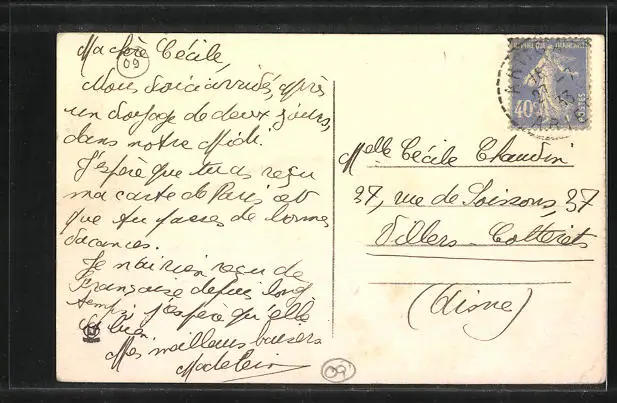 Ma chère Cécile,
09
Nous voici arrivées, après
un voyage de deux jours,
dans notre Midi.
J'espère que tu as reçu
ma carte de Paris et
que tu passes de bonnes
vacances.
Je n'ai rien reçu de
Françoise depuis long
temps; j'espère qu'elle
va bien.
Mes meilleurs baisers
Madeleine
09
40c
POSTES
Melle Cécile Chaudin
37, rue de Soissons, 37
Villers-Cotterêts
(Aisne)